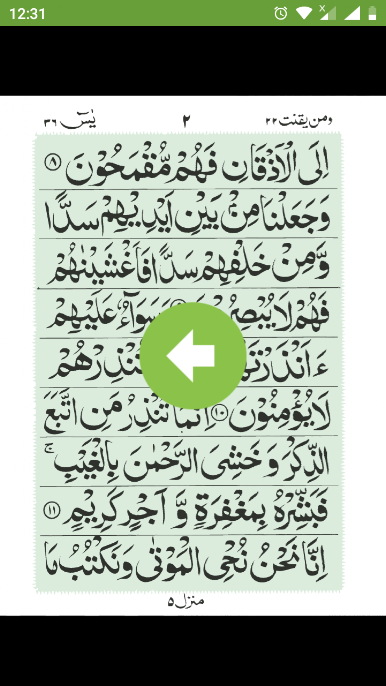 12:31
ومن یقنت ۲۲ ۲ یٰسٓ ۳٦
اِلَى الْاَذْقَانِ فَهُمْ مُّقْمَحُوْنَ ﴿۸﴾
وَجَعَلْنَا مِنْۢ بَيْنِ اَيْدِيْهِمْ سَدًّا
وَّمِنْ خَلْفِهِمْ سَدًّا فَاَغْشَيْنٰهُمْ
فَهُمْ لَا سَوَآءٌ عَلَيْهِمْ
لَا يُؤْمِنُوْنَ ﴿۱۰﴾ اِنَّمَا تُنْذِرُ مَنِ اتَّبَعَ
الذِّكْرَ وَخَشِىَ الرَّحْمٰنَ بِالْغَيْبِ ۚ
فَبَشِّرْهُ بِمَغْفِرَةٍ وَّ اَجْرٍ كَرِيْمٍ ﴿۱۱﴾
اِنَّا نَحْنُ نُحْىِ الْمَوْتٰى وَنَكْتُبُ مَا
منزل ۵